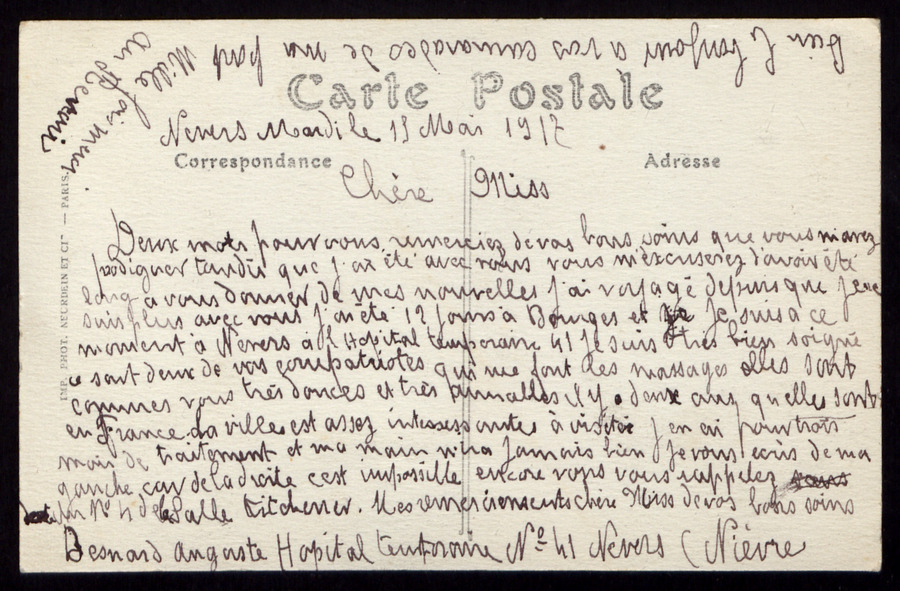 Carte Postale
Nevers Mardi le 13 Mai 1917
Correspondance
Adresse
Chère Miss
Deux mots pour vous remerciez de vos bons soins que vous m'avez
prodiguer tandis que j'ai été avec vous vous m'excuserez d'avoir été
long a vous donner de mes nouvelles j'ai voyagé depuis que je ne
suis plus avec vous j'ai été 12 jours à Bourges et Je suis a ce
moment à Nevers à l'Hopital temporaire 41 Je suis très bien soigné
ce sont deux de vos compatriotes qui me font des massages elles sont
commes vous très douces et très aimables il y a deux ans qu'elles sont
en France la ville est assez interessante à visiter J'en ai pour trois
mois de traitement et ma main n'ira jamais bien Je vous ecris de ma
gauche car de la droite c'est impossible encore vous vous rappelez
du N° 4 de la Salle Kitchener. Mes remerciements chère Miss de vos bons soins
Besnard Auguste Hopital temporaire N° 41 Nevers (Nièvre
bonjour a tes camarades de ma part
Mille fois merci
Au Revoir
IMP. PHOT. NEURDEIN ET Cie — PARIS.